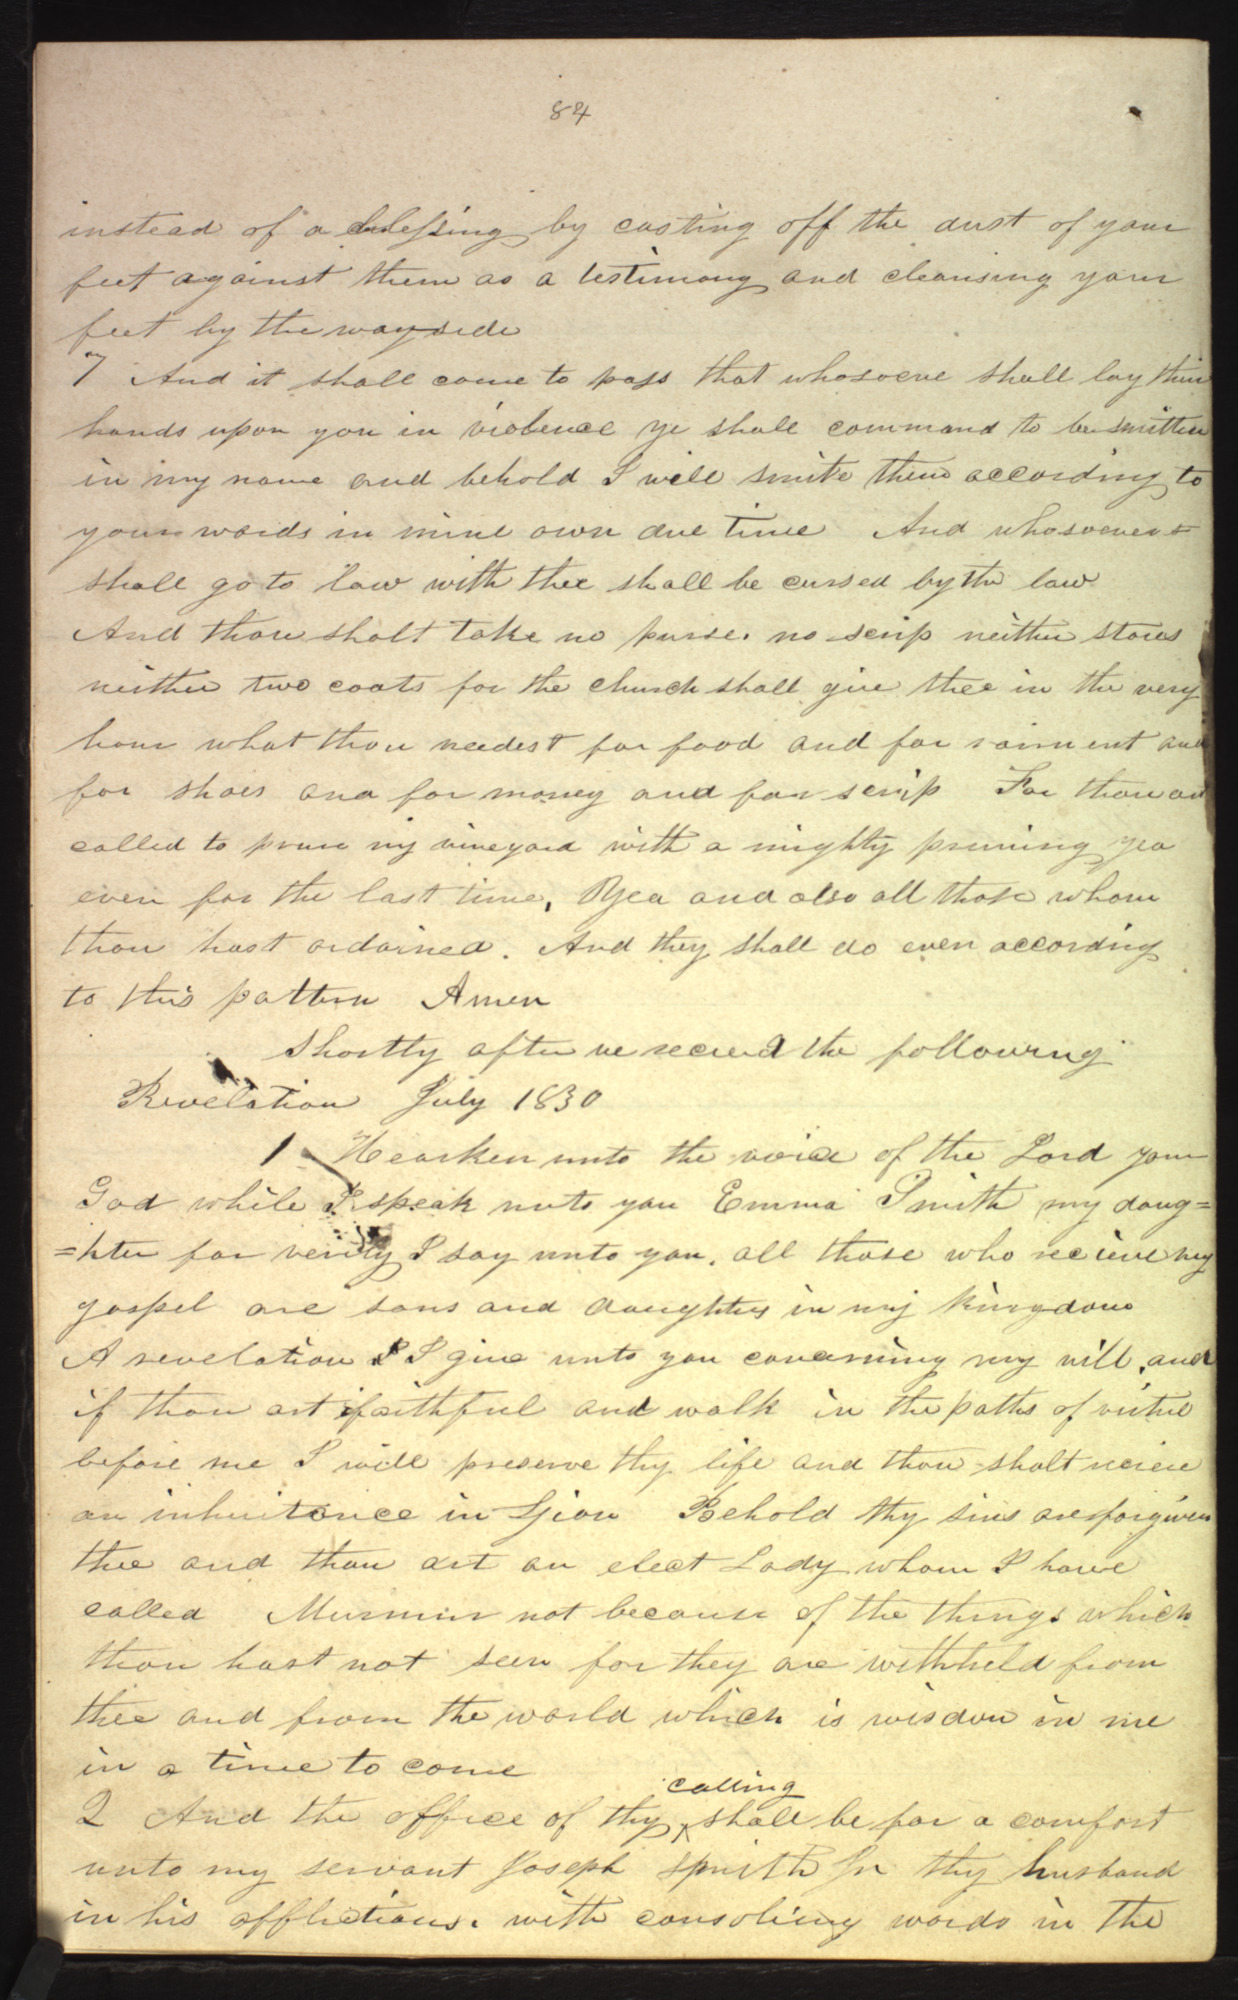 84
instead of a blessing by casting off the dust of your
feet against them as a testimony and cleansing your
feet by the wayside
7 And it shall come to pass that whosoeve shall lay thier
hands upon you in violence ye shall command to be smitten
in my name and behold I will smite them according to
your words in mine own due time And whosoever
shall go to law with thee shall be cursed by the law
And thou shalt take no purse. no scrip neither staves
neither two coats for the church shall give thee in the very
hour what thou needest for food and for raiment and
for shoes and for money and for scrip For thou art
called to prune my vineyard with a mighty pruning yea
even for the last time, Yea and also all those whom
thou hast ordained. And they shall do even according
to this pattern Amen
Shortly after we recieved the following
Revelation July 1830
1 Hearken unto the voice of the Lord your
God while I speak unto you Emma Smith my daug=
=hter for verily I say unto you, all those who recieve my
gospel are sons and daughters in my kingdom
A revelation I I give unto you concerning my will, and
if thou art faithful and walk in the paths of virtue
before me I will preserve thy life and thou shalt recieve
an inheritance in Zion Behold thy sins are forgiven
thee and thou art an elect Lady whom I have
called Murmur not because of the things which
thou hast not seen for they are withheld from
thee and from the world which is wisdom in me
in a time to come
calling
2 And the office of thy ^ shall be for a comfort
unto my servant Joseph Smith Jr thy husband
in his afflictions. with consoling words in the